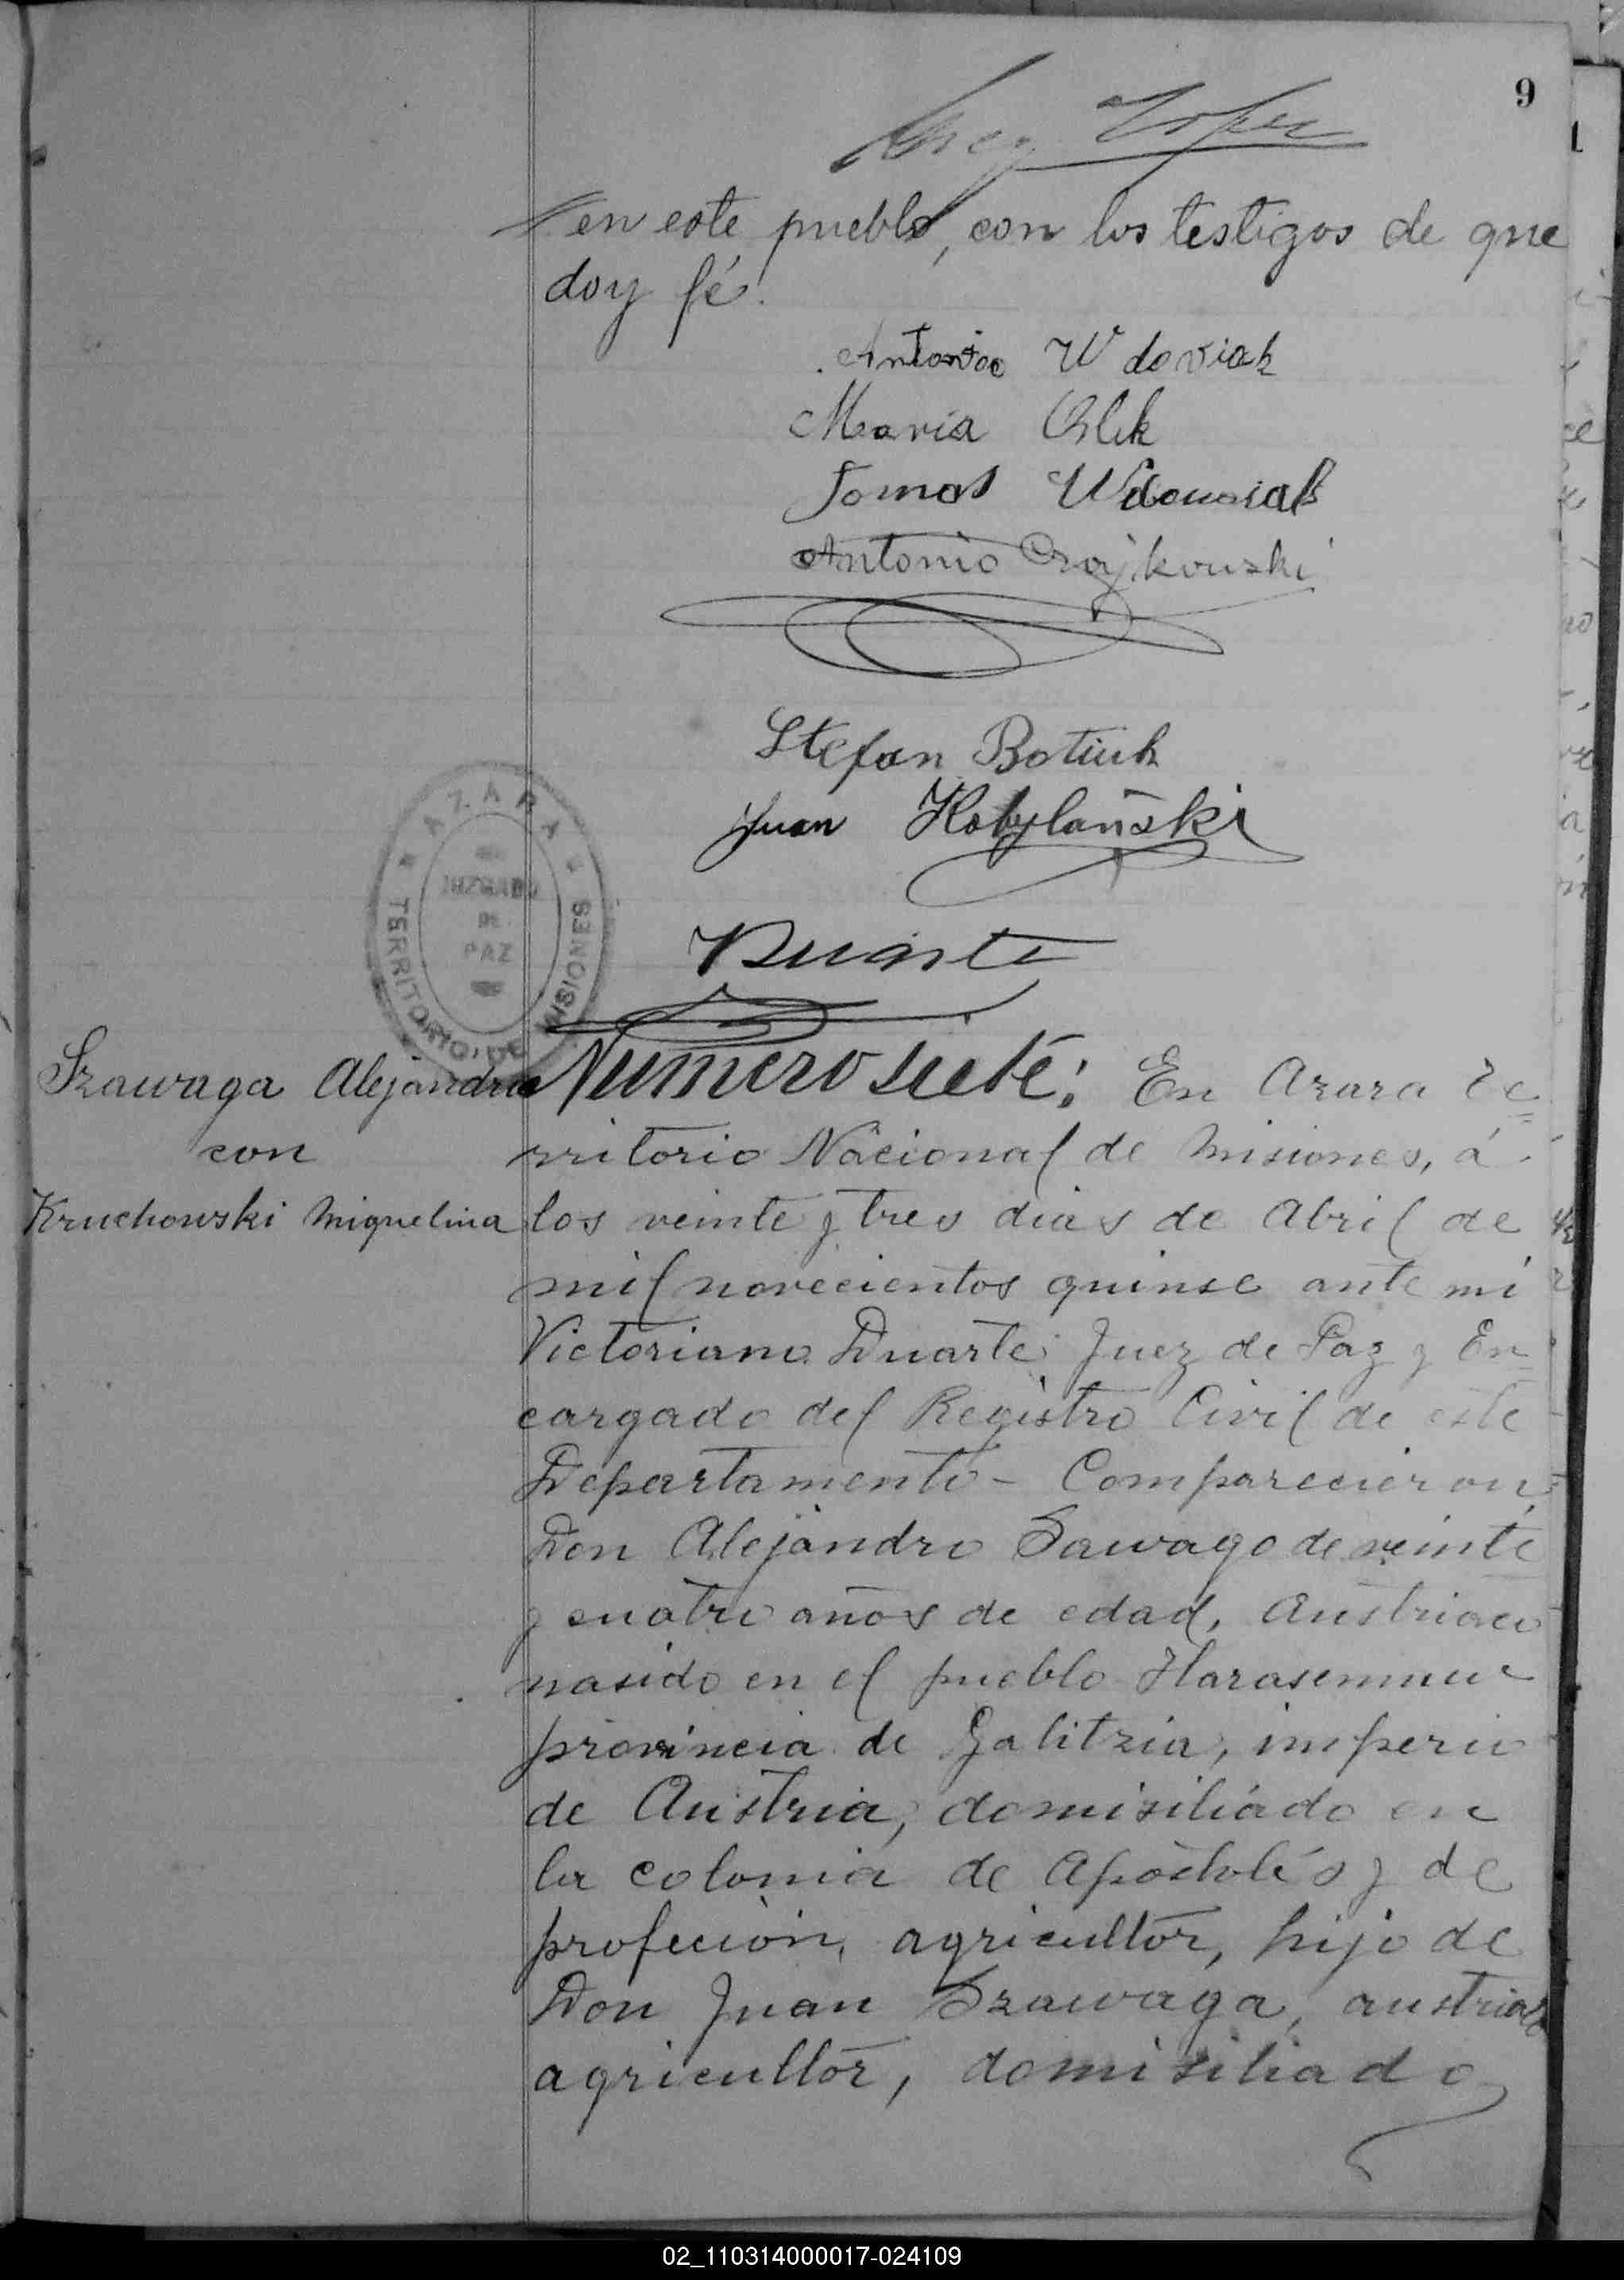 9
en este pueblo, con los testigos de que
doy fé.
Antonio Wdoviak
Maria
Tomas Wdowiak
Antonio
Stefan Botiuk
Juan Kobylański
Duarte
AZARA
JUZGADO
DE
PAZ
TERRITORIO DE MISIONES
Szawaga Alejandro
con
Kruchowski Miguelina
Numero siete: En Azara Te=
rritorio Nacional de Misiones, á
los veinte y tres dias de Abril de
mil novecientos quinse ante mi
Victoriano Duarte Juez de Paz y En=
cargado del Registro Civil de este
Departamento - Comparecieron
Don Alejandro Sawago de veinte
y cuatro años de edad, Austriaco
nasido en el pueblo
provincia de Galitzia, imperio
de Austria, domisiliado en
la colonia de Apóstolés y de
profeción, agricultor, hijo de
Don Juan Szawaga, austriaco
agricultor, domisiliado
02_110314000017-024109